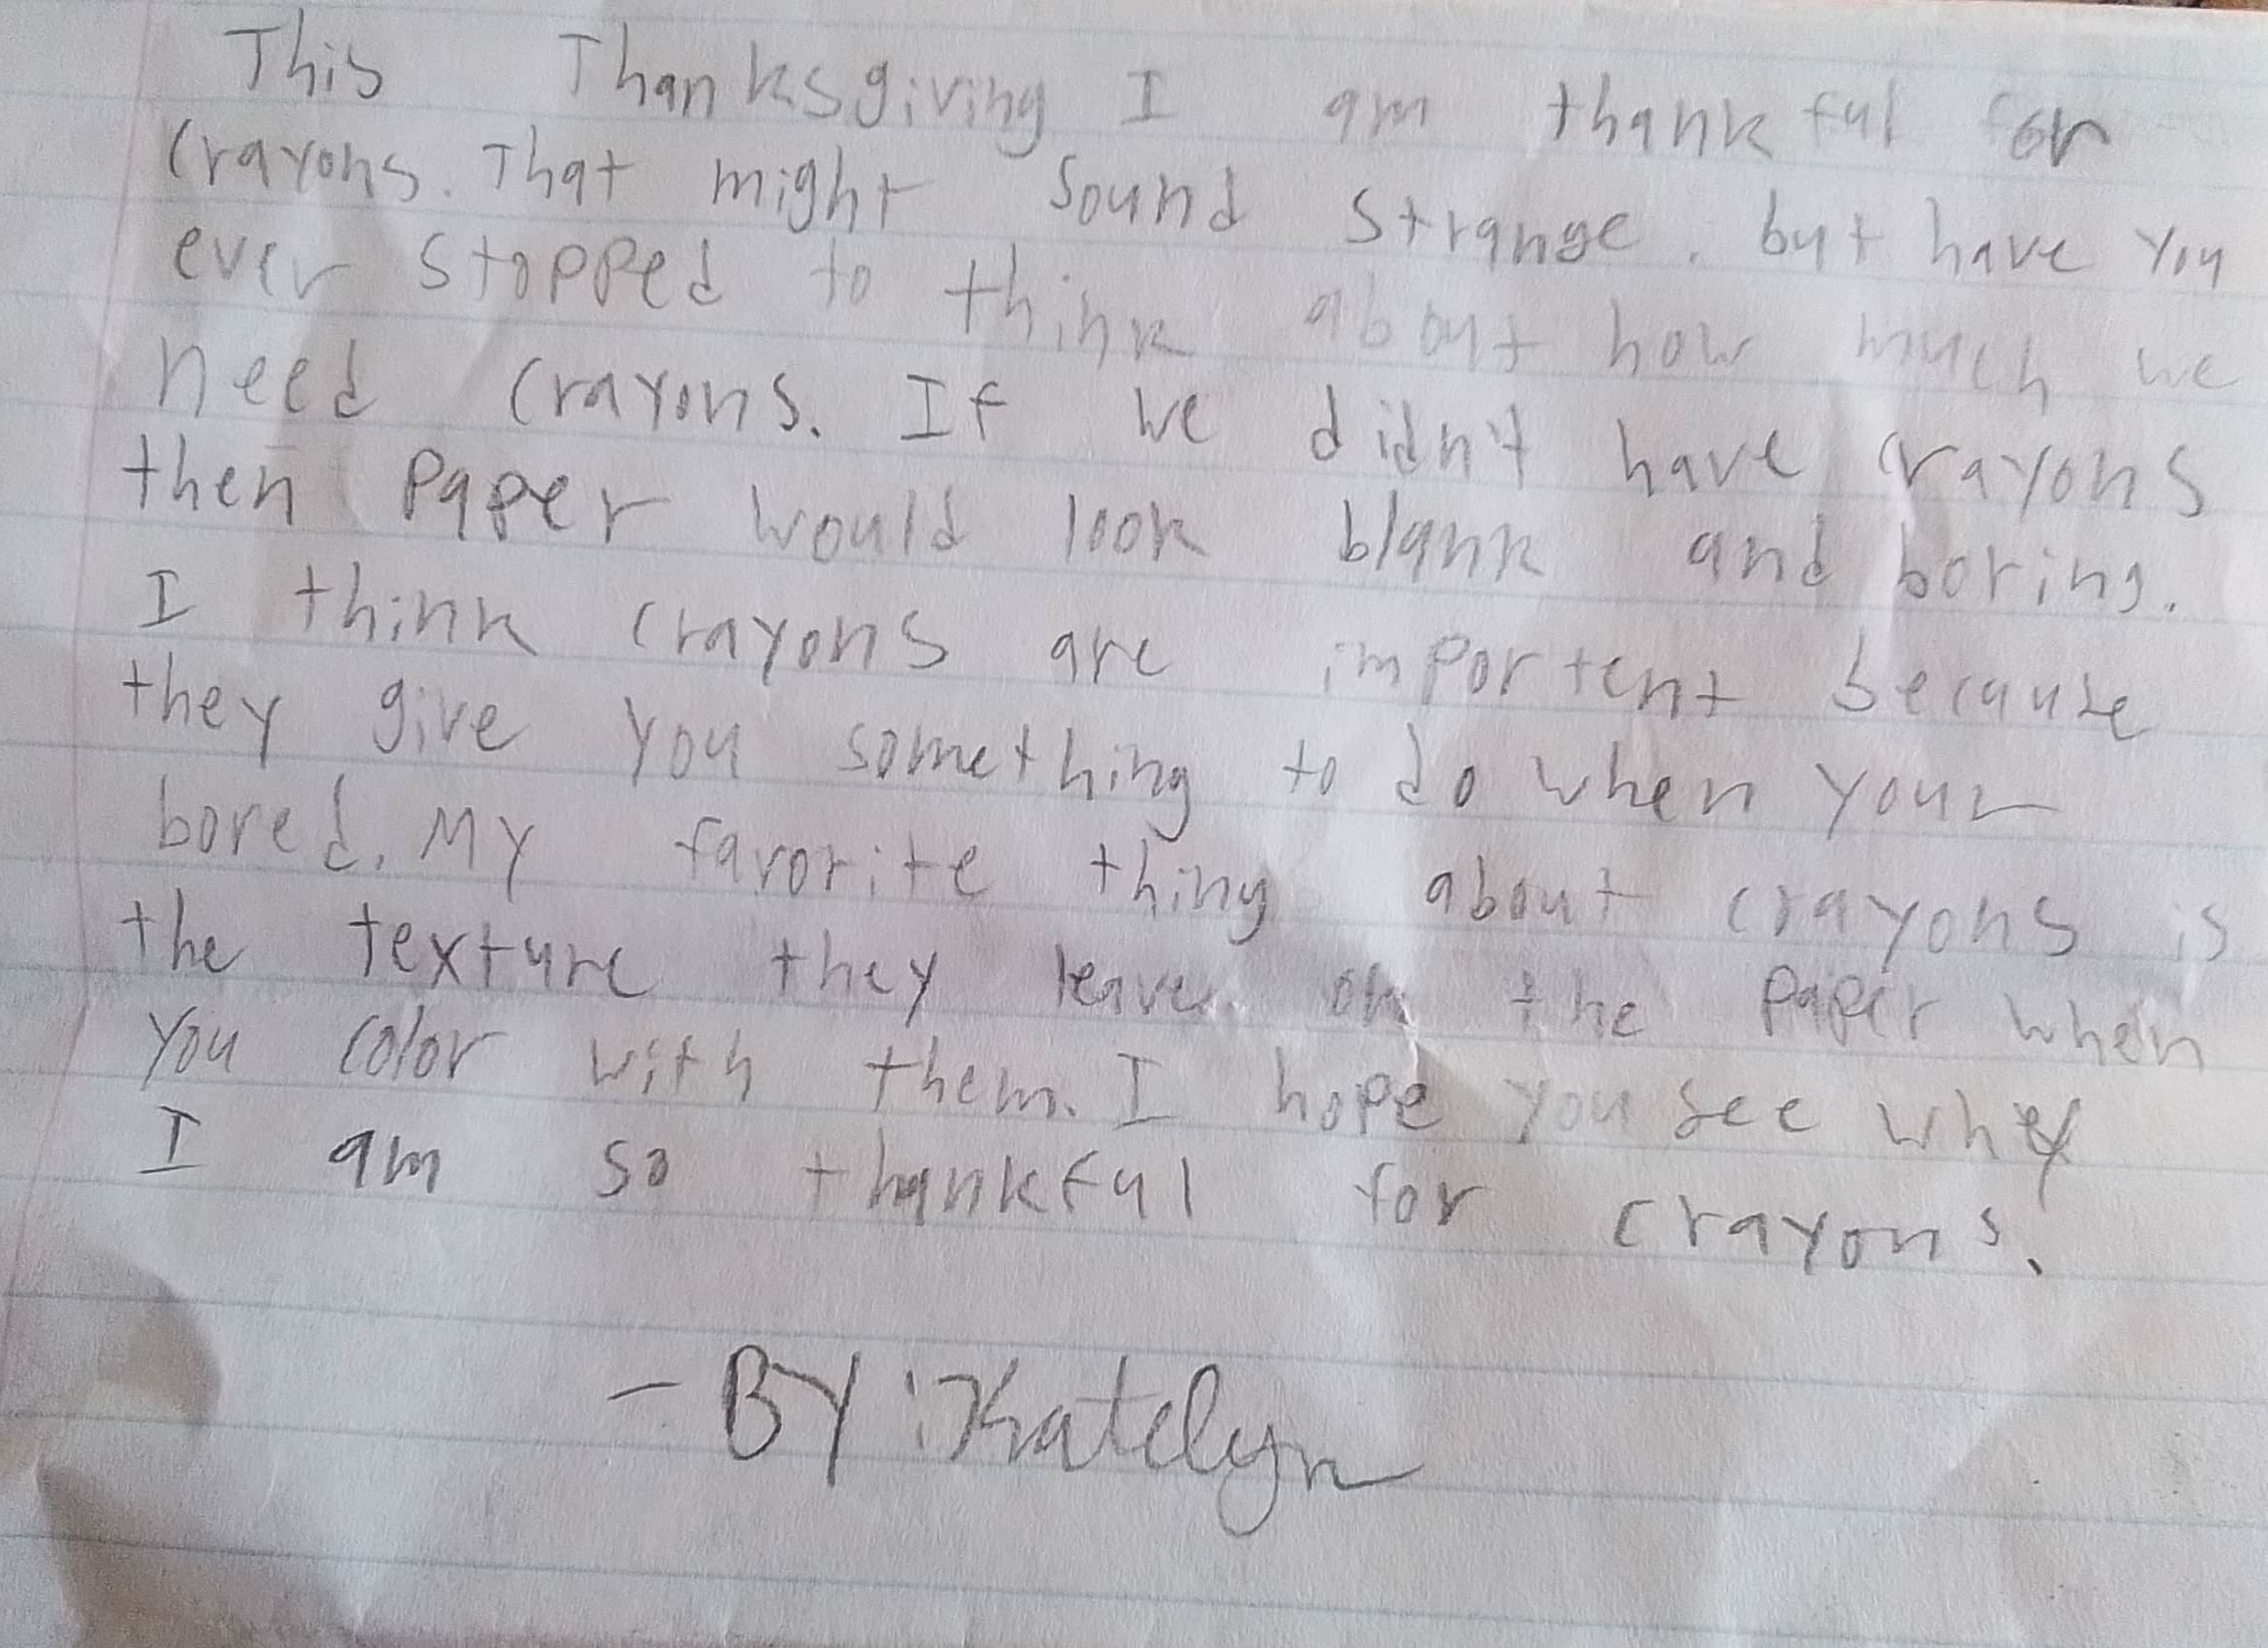 This Thanksgiving I am thankful for
crayons. That might sound strange. but have you
ever stopped to think about how much we
need crayons. If we didn't have crayons
then paper would look blank and boring.
I think crayons are importent because
they give you something to do when your
bored. My favorite thing about crayons is
the texture they leave on the paper when
you color with them. I hope you see why
I am so thankful for crayons.
- BY: Katelyn